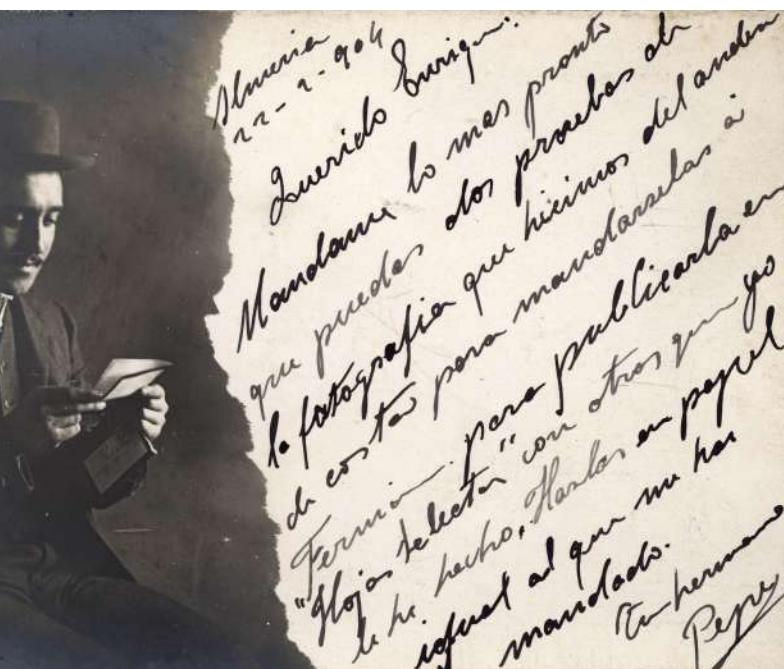 Almeria
22-2-904
Querido Enrique:
Mandame lo mas pronto
que puedas dos pruebas de
la fotografia que hicimos del anden
de costa para mandarselas á
Fermin para publicarla en
"Hojas Selectas" con otras que yo
le he hecho. Hazlas en papel
igual al que me has
mandado.
Tu hermano
Pepe